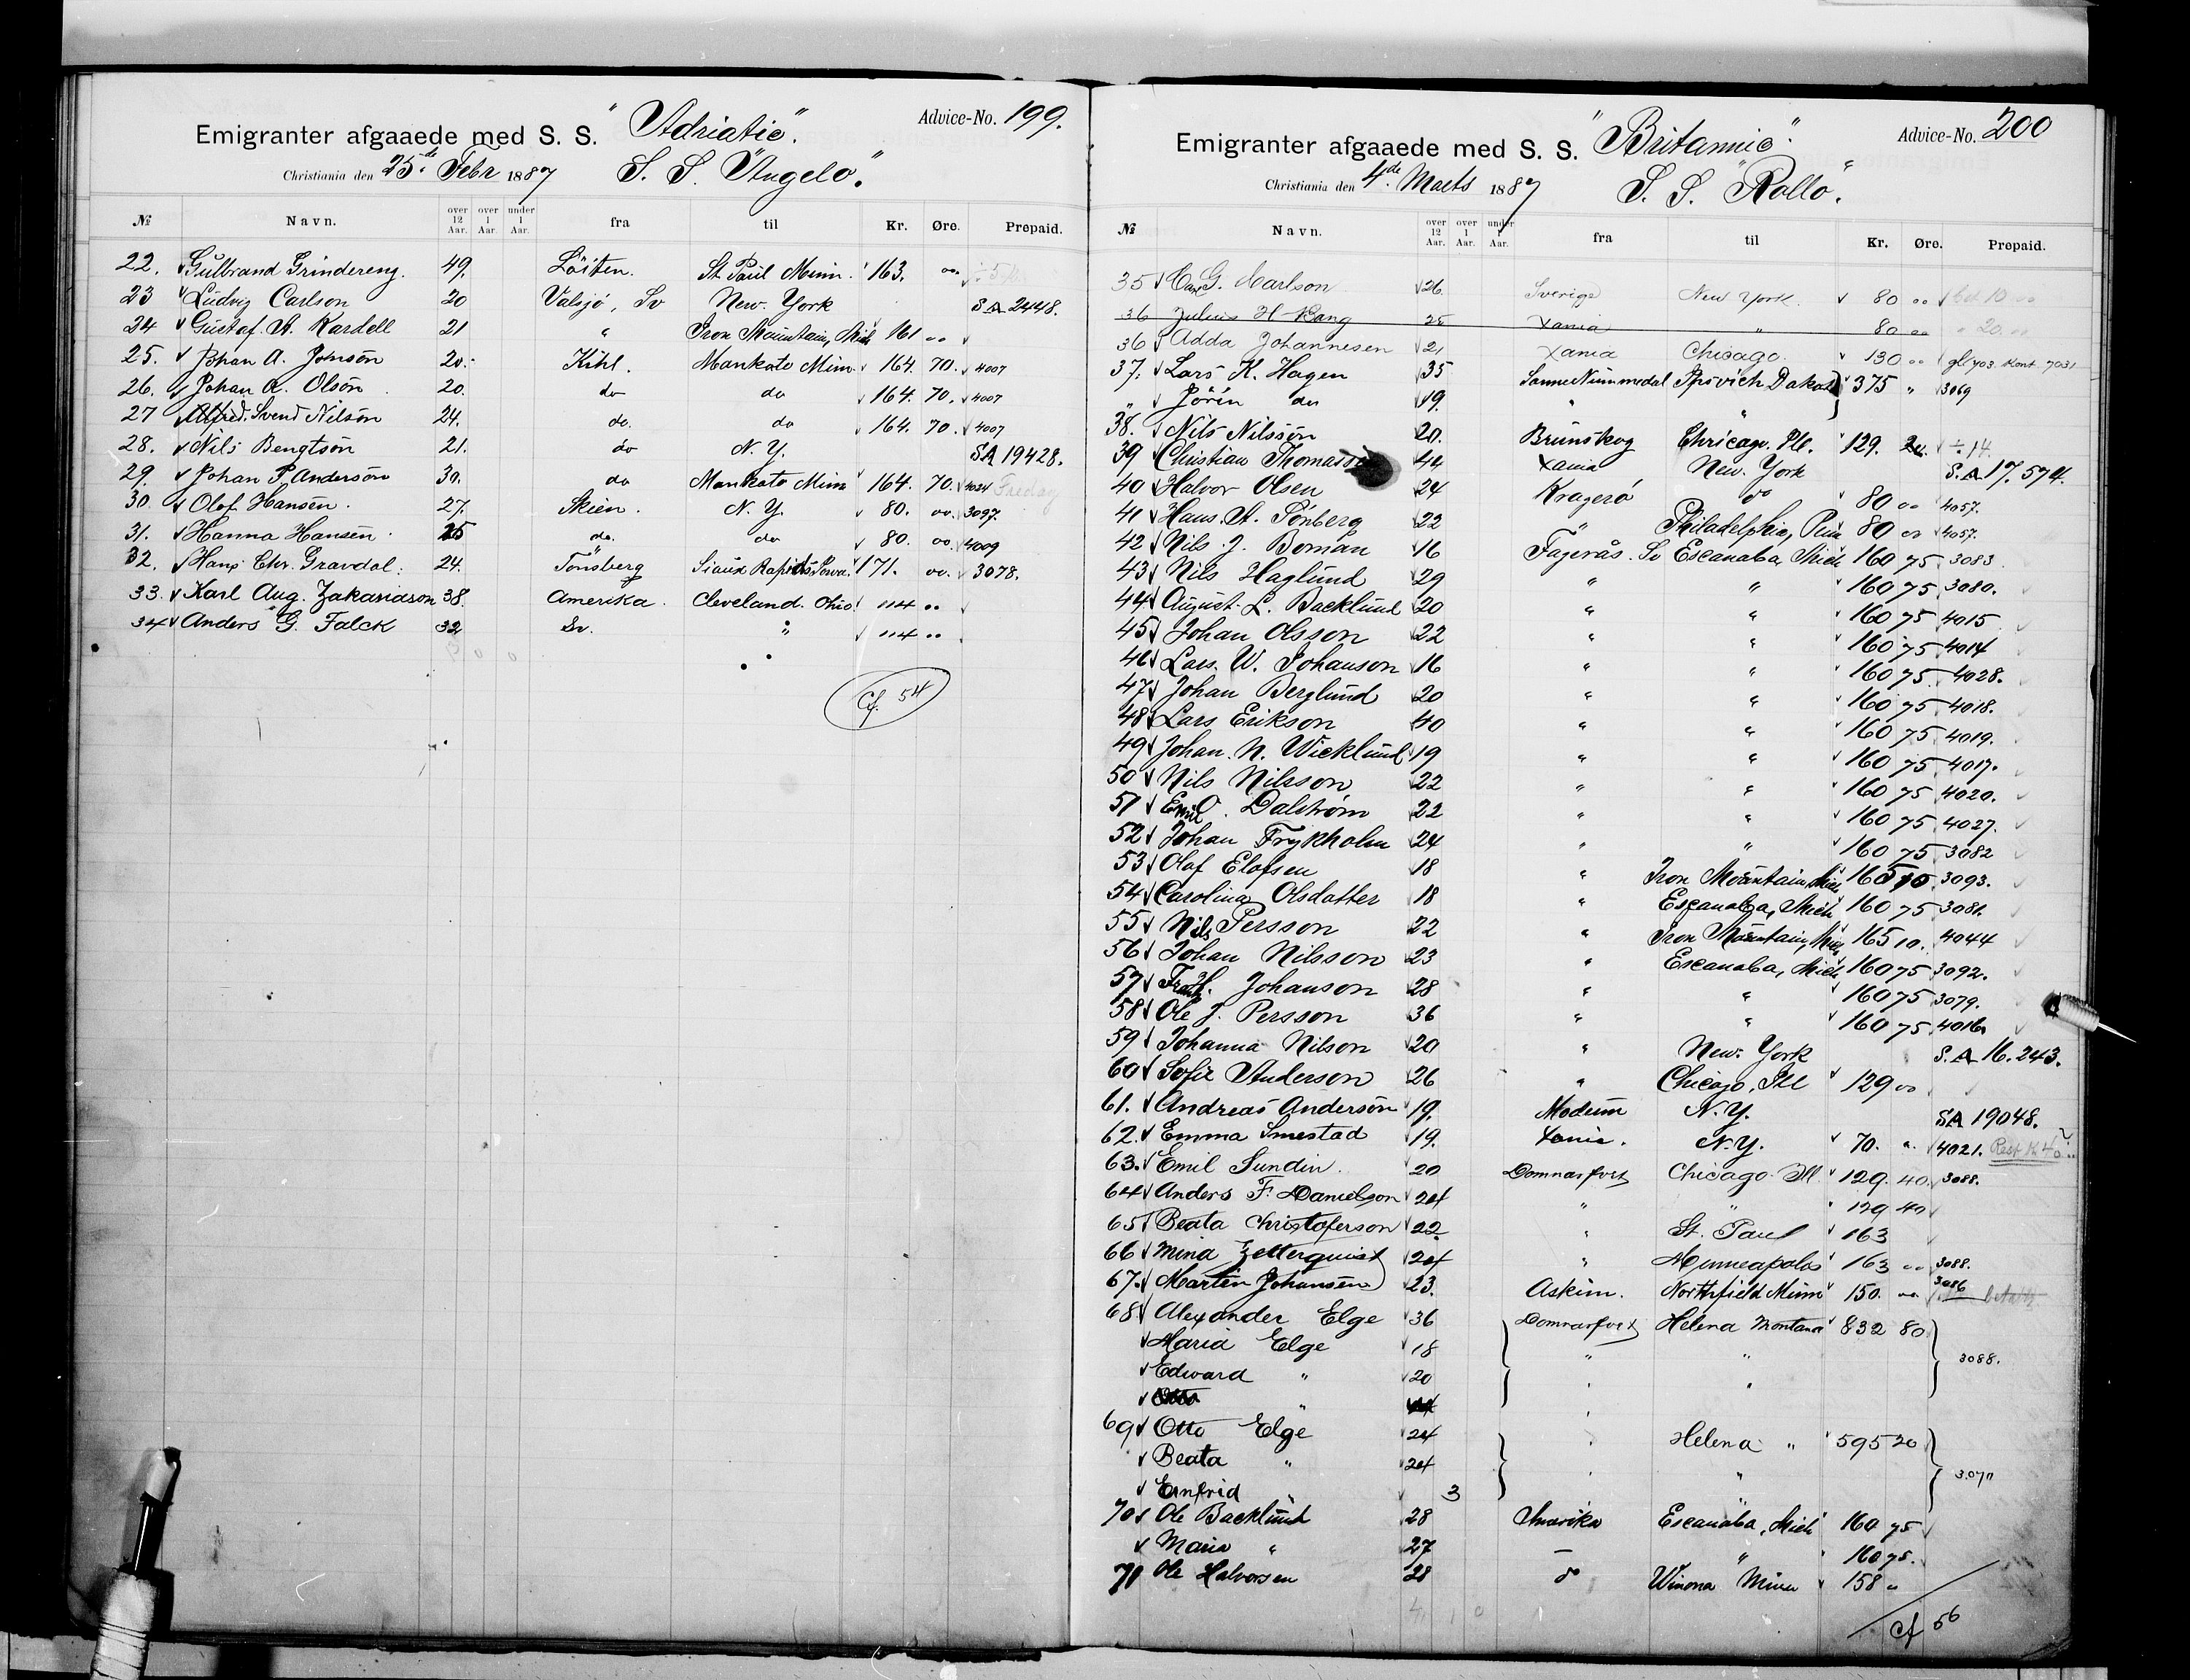 Emigranter afgaaede med S. S. "Adriatic". Advice-No. 199.
Christiania den 25de Febr 1887 S. S. "Angelo".
№ Navn. over 12 Aar. over 1 Aar. under 1 Aar. fra til Kr. Øre. Prepaid.
22. Gulbrand Grindereng. 49. Löiten. St. Paul Minn. 163. oo.
23 Ludvig Carlson 20 Valsjö, Sv New-York SA 2448.
24 Gustaf A. Kardell 21 " Iron Mountain, Mich 161 oo
25. Johan A. Jonson 20. Kihl. Mankato Minn. 164. 70. 4007
26. Johan A. Olson 20. do do 164. 70. 4007
27 Alfred Svend Nilson 24. do. do 164. 70. 4007
28. Nils Bengtson 21. do N. Y. SA 19428.
29. Johan P. Anderson 30. do Mankato Minn 164. 70. 4024 Freday
30. Olof Hansen. 27. Skien. N. Y. 80. oo. 3097.
31. Hanna Hansen 25 do. do 80. oo. 4009
32. Hans Chr. Gravdal. 24. Tönsberg Sioux Rapids, Iowa. 171. oo. 3078.
33. Karl Aug. Zakariason 38. Amerika. Cleveland. Ohio. 114 oo
34 Anders G. Falck 32 Sv. " 114 oo
Cf. 54
Emigranter afgaaede med S. S. "Britannic". Advice-No. 200
Christiania den 4de Marts 1887 S. S. "Rollo".
№ Navn. over 12 Aar. over 1 Aar. under 1 Aar. fra til Kr. Øre. Prepaid.
35 G. Carlson 26. Sverige New York. 80 oo
36 Julius H Bang 25 Xania " 80 oo " 20. oo
36 Adda Johannesen 21 Xania Chicago. 130 oo 703 Kont 7031
37. Lars K. Hagen 35 Sanne Nummedal Dakota 375 " 3069
" Jörin do 19. " "
38. Nils Nilsson 20. Brunskog Chicago. Ill. 129. ÷ 14.
39 Christian 44 Xania New-York S.A 17.574.
40 Halvor Olsen 24 Kragerö do 80 oo 4057.
41 Hans. A. Tönberg 22 " Philadelphia, Penn 80 oo 4057.
42 Nils J. Boman 16 Fagerås. Sv Escanaba, Mich 160 75 3083
43 Nils Haglund 29 " " 160 75 3080.
44 August L. Backlund 20 " " 160 75 4015
45 Johan Olsson 22 " " 160 75 4014
46 Lars. W. Johanson 16 " " 160 75 4028.
47 Johan Berglund 20 " " 160 75 4018.
48 Lars Erikson 40 " " 160 75 4019.
49 Johan. N. Wicklund 19 " " 160 75 4017.
50 Nils Nilsson 22 " " 160 75 4020.
51 Emil. Dalström 22 " " 160 75 4027.
52 Johan Frykholm 24 " " 160 75 3082
53 Olof Elofsen 18 " Iron Mountain, Mich 165 10 3093.
54 Carolina Olsdatter 18 " Escanaba, Mich 160 75 3081.
55 Nils Persson 22 " Iron Mountain, Mich 165 10. 4044
56 Johan Nilsson 23 " Escanaba, Mich 160 75 3092.
57 Johanson 28 " " 160 75 3079.
58 Ole J. Persson 36 " " 160 75 4016
59 Johanna Nilson 20 " New-York S. A 16.243.
60 Sofie Anderson 26 " Chicago, Ill 129 oo
61. Andreas Anderson 19. Modum N. Y. SA 19048.
62. Emma Smestad 19. Xania. N. Y. 70. " 4021. Rest Kr
63. Emil Sundin. 20 Domnarfvet Chicago Ill. 129. 40. 3088.
64 Anders F. Danielson 24 " " 129 40
65 Beata Christoferson 22. " St. Paul 163
66 Mina Zetterquist 24 " Minneapolis 163 oo 3088.
67. Martin Johansen 23. Askim. Northfield Minn 150. oo. 3086
68 Alexander Elge 36 Domnarfvet Helena Montana 832 80
Maria Elge 18 " " 3088.
Edward " 20 " "
Otto "
69 Otto Elge 24 " Helena " 595 20
Beata " 24 " "
Emfrid " 3
70 Ole Backlund 28 Amerika Escanaba, Mich 160 75
Maria " 27 — " 160 75.
71 Ole Halvorsen 28 do Winona Minn 158 "
4, 1 0
Cf 56